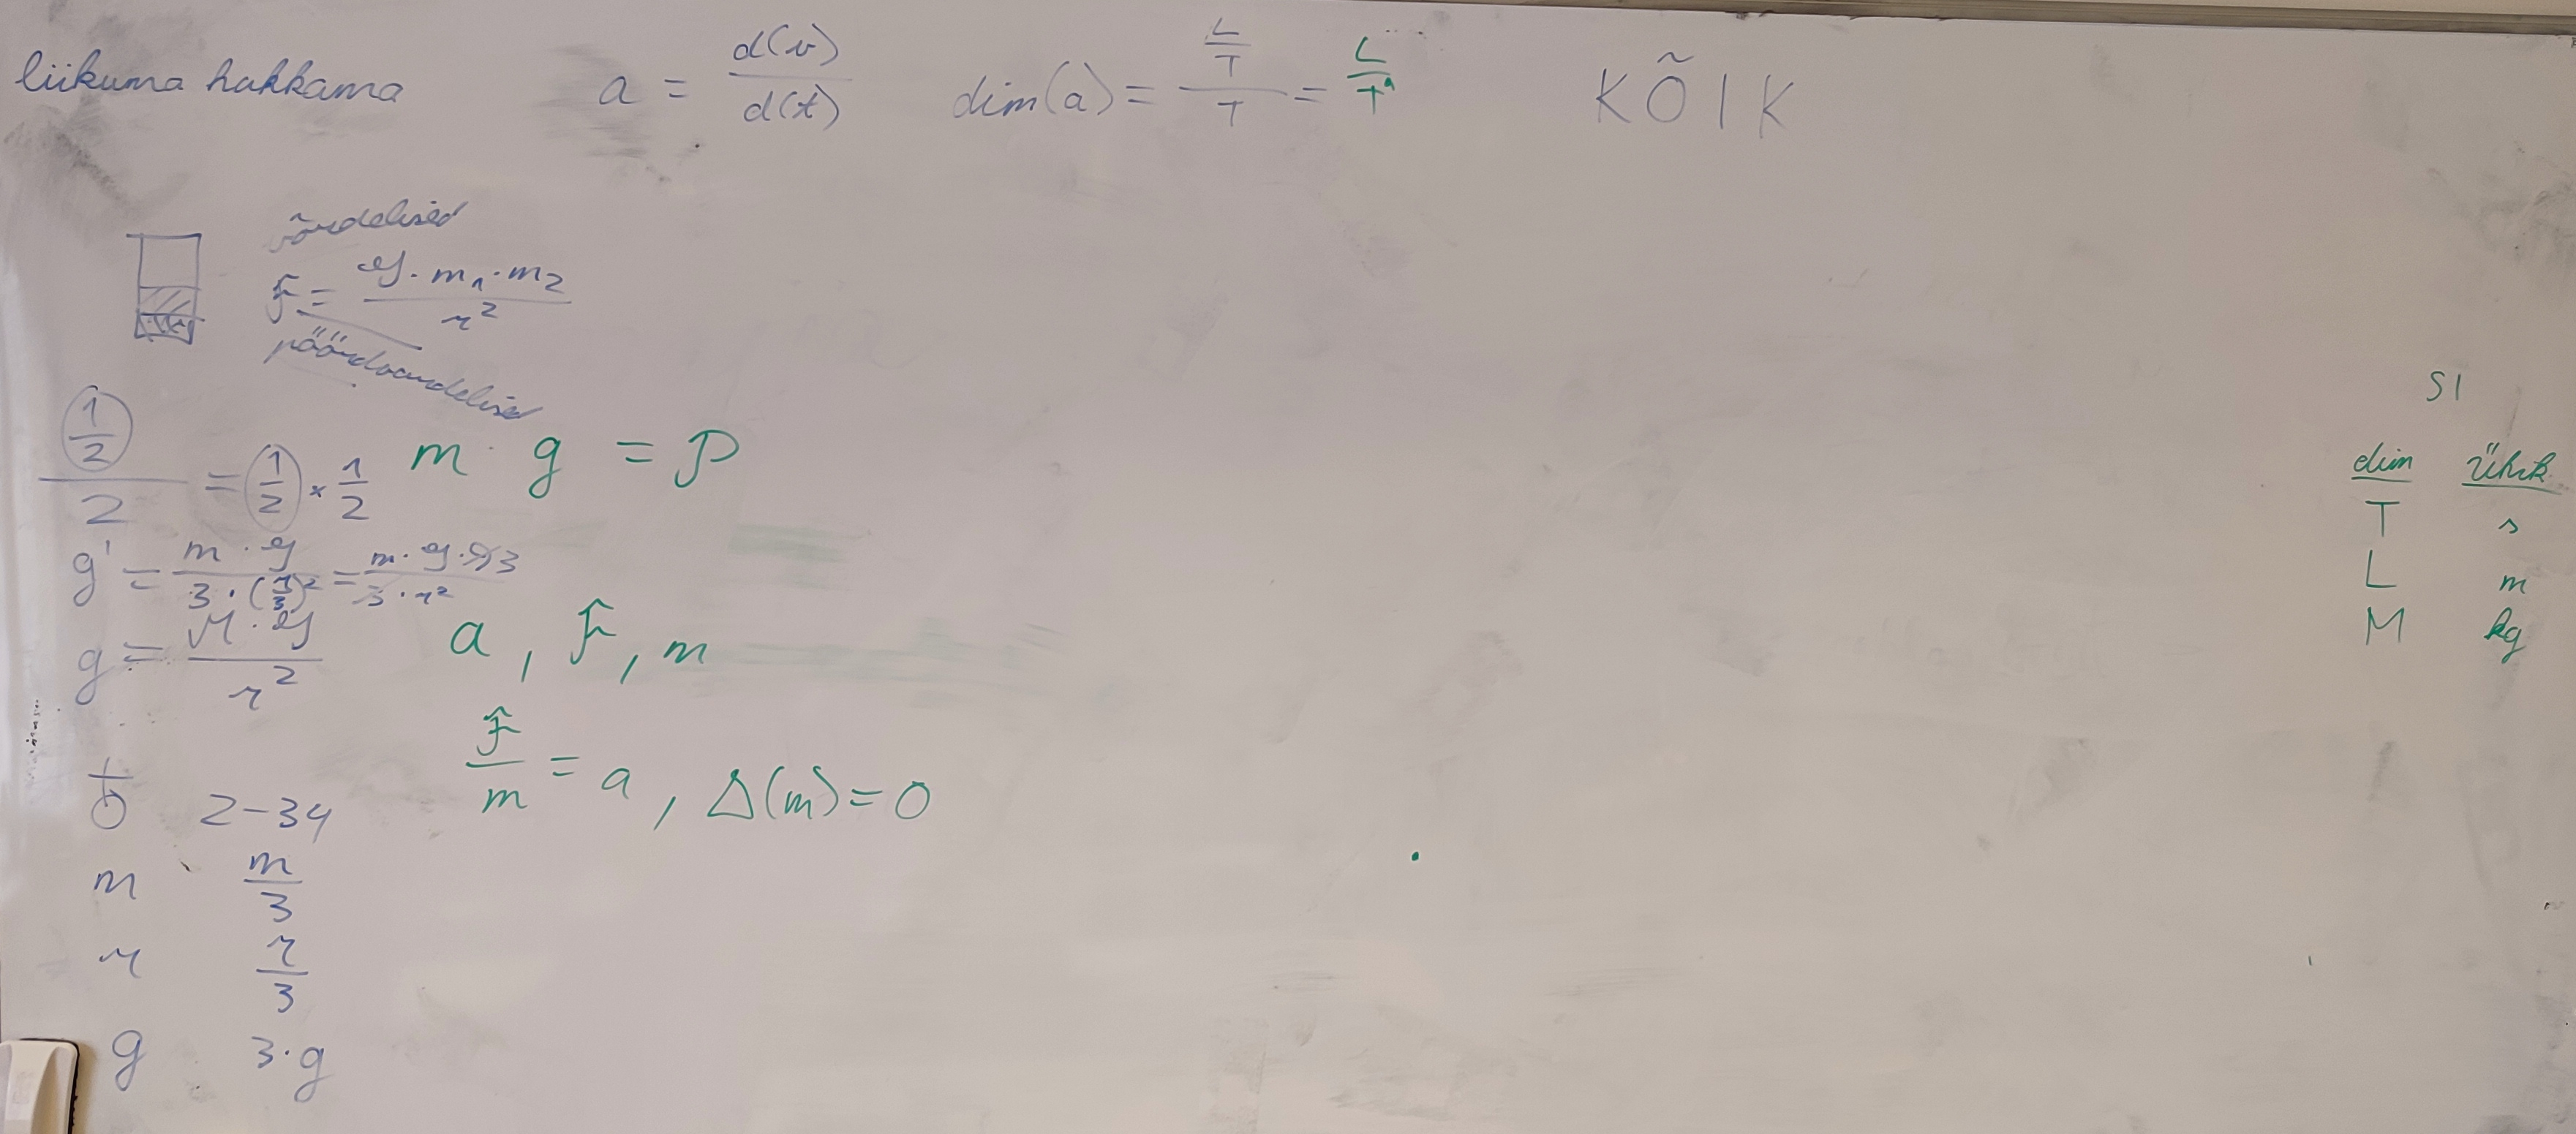 liikuma hakkama
a = d(v)/d(t)
dim(a) = (L/T)/T = L/T²
KÕIK
võrdelised
F = G·m₁·m₂/r²
pöördvõrdelised
(1/2)/2 = 1/2 × 1/2
m · g = P
g' = m·G/(3·(r/3)²) = m·G·93/(3·r²)
g = M·G/r²
a, F, m
F/m = a, Δ(m)=0
♁ 2-34
m m/3
r r/3
g 3·g
SI
dim ühik
T s
L m
M kg